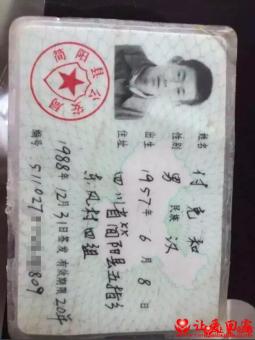 姓名 付克和
性别 男 民族 汉
出生 1957年6月8日
住址 四川省简阳县五指乡
东风村四组
1988年12月31日签发 有效期限20年
编号 511027 809
简阳县公安局
让爱回家